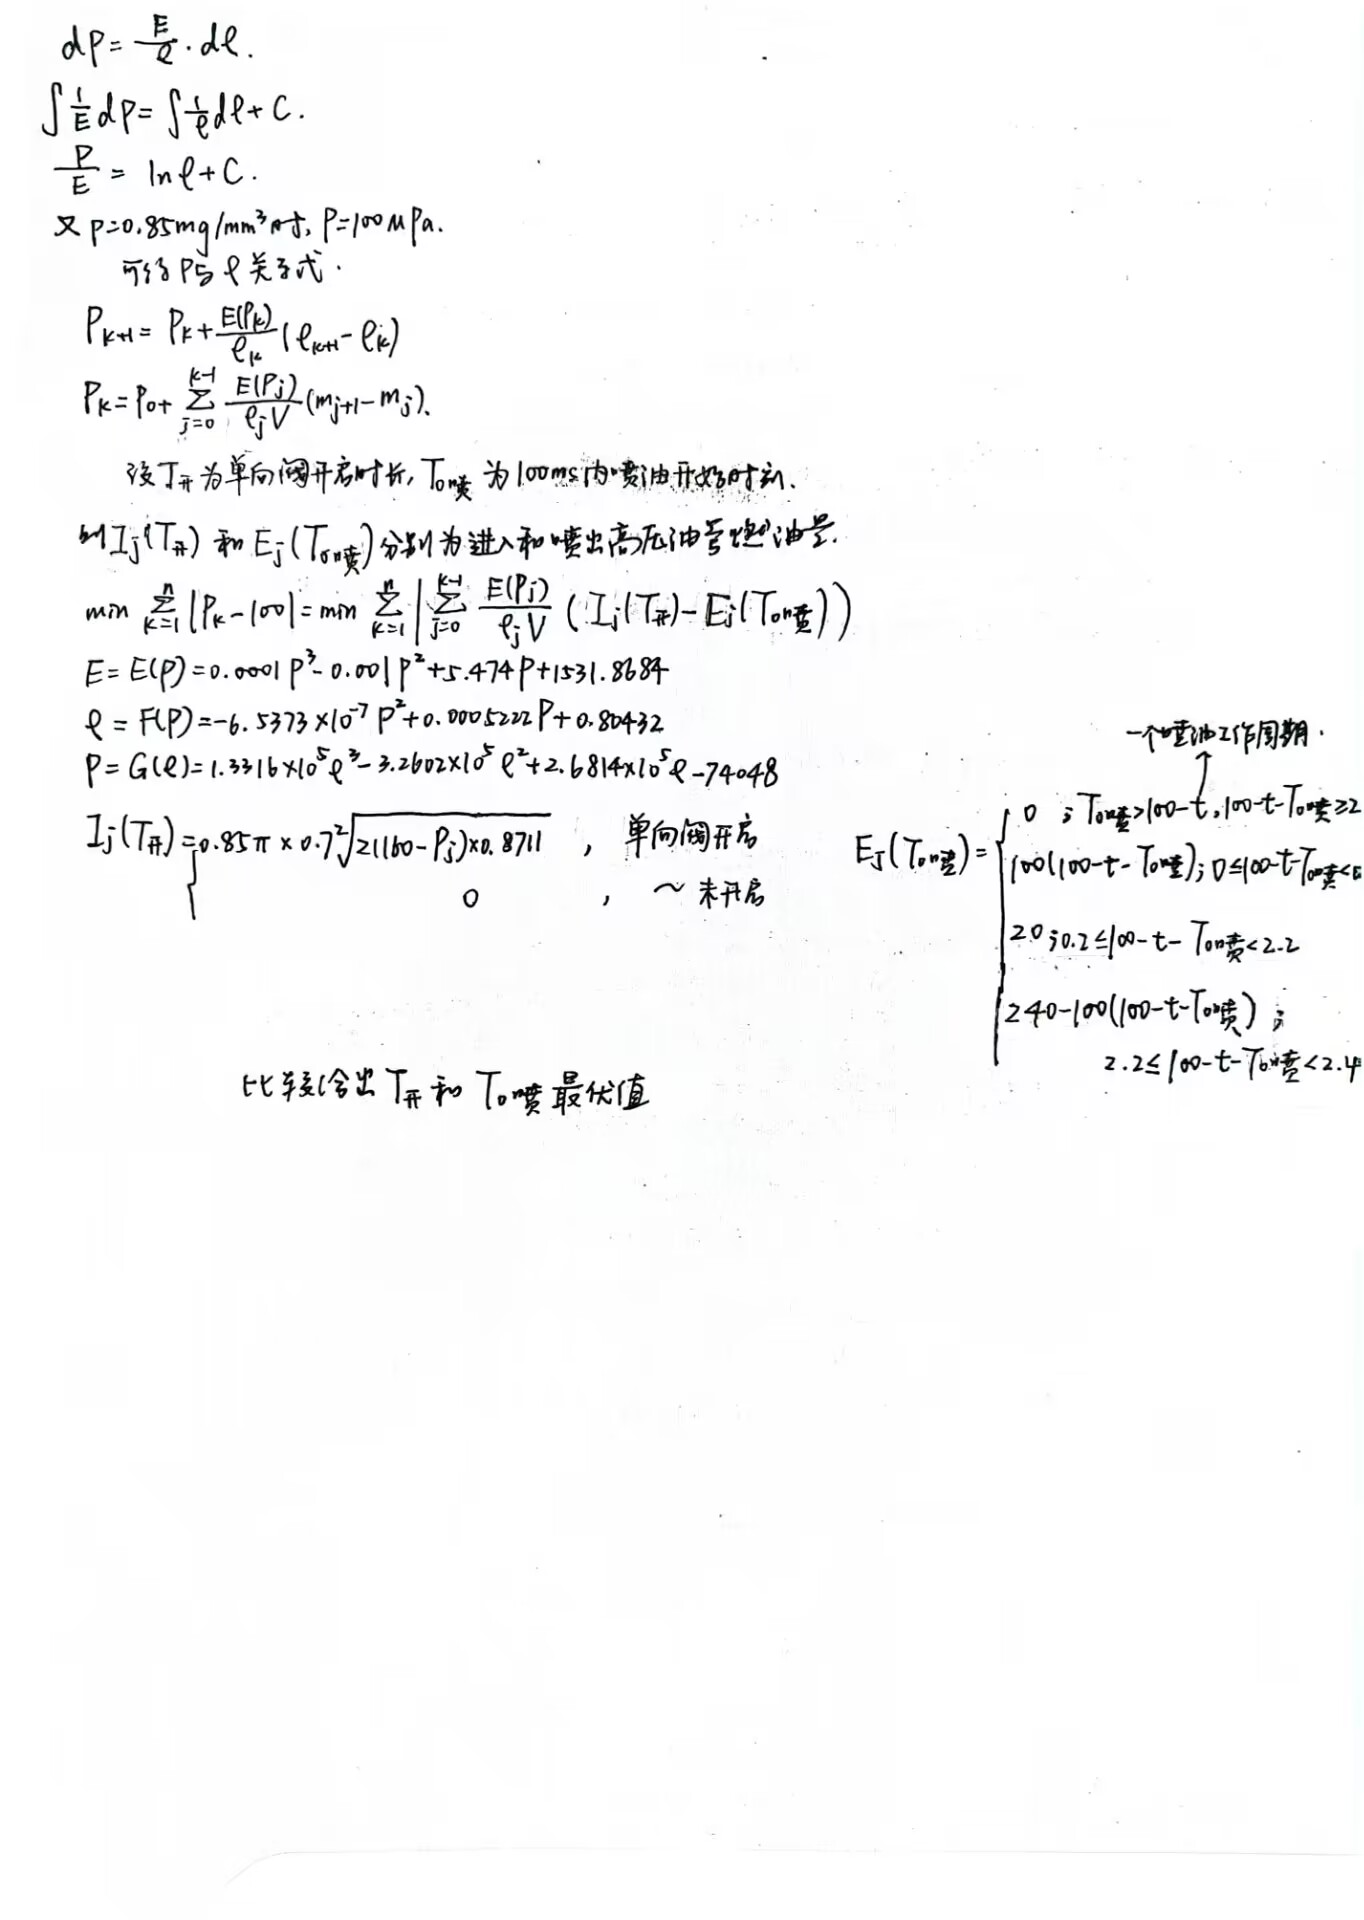 dP = E/ρ · dρ.
∫ 1/E dP = ∫ 1/ρ dρ + C.
P/E = ln ρ + C.
又 ρ=0.85mg/mm³时, P=100MPa.
可得P与ρ关系式.
P_{k+1} = P_k + E(P_k)/ρ_k (ρ_{k+1} - ρ_k)
P_k = P_0 + ∑_{j=0}^{k-1} E(P_j)/(ρ_j V) (m_{j+1} - m_j).
设T开为单向阀开启时长, T_{on喷}为100ms内喷油开始时刻.
则 I_j(T开) 和 E_j(T_{on喷}) 分别为进入和喷出高压油管燃油量.
min ∑_{k=1}^{n} |P_k - 100| = min ∑_{k=1}^{n} | ∑_{j=0}^{k-1} E(P_j)/(ρ_j V) (I_j(T开) - E_j(T_{on喷})) )
E = E(P) = 0.0001P³ - 0.001P² + 5.474P + 1531.8684
ρ = F(P) = -6.5373×10⁻⁷P² + 0.0005222P + 0.80432
P = G(ρ) = 1.3316×10⁵ρ³ - 3.2602×10⁵ρ² + 2.6814×10⁵ρ - 74048
I_j(T开) = { 0.85π × 0.7² √(2(160-P_j)×0.8711) , 单向阀开启
0 , ~ 未开启
一个喷油工作周期.
E_j(T_{on喷}) = { 0 ; T_{on喷}>100-t, 100-t-T_{on喷}≥2
100(100-t-T_{on喷}); 0≤100-t-T_{on喷}<
20; 0.2≤100-t-T_{on喷}<2.2
240-100(100-t-T_{on喷}) ;
2.2≤100-t-T_{on喷}<2.4
比较给出 T开 和 T_{on喷} 最优值